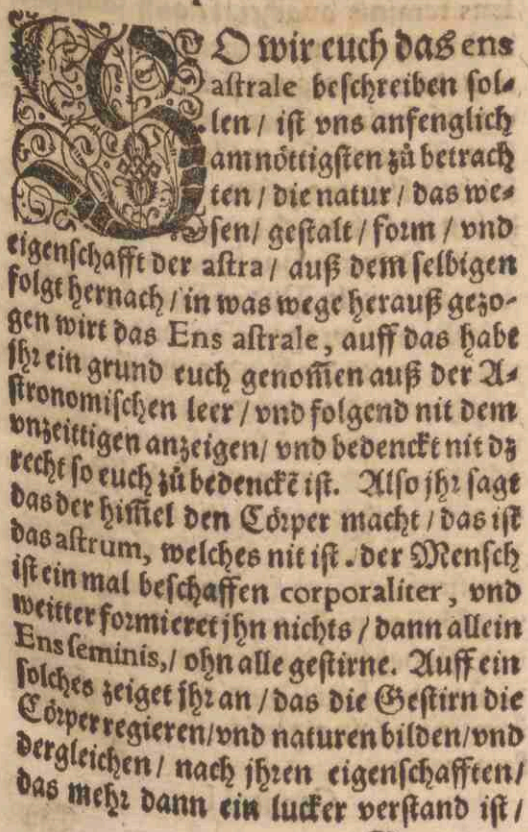 SO wir euch das ens
astrale beschreiben sol⸗
len / ist vns anfenglich
am nöttigsten zů betrach
ten / die natur / das we⸗
sen / gestalt / form / vnd
eigenschafft der astra / auß dem selbigen
folgt hernach / in was wege herauß gezo⸗
gen wirt das Ens astrale, auff das habe
jhr ein grund euch genom̃en auß der A⸗
stronomischen leer / vnd folgend nit dem
vnzeittigen anzeigen / vnd bedenckt nit dz
recht so euch zů bedenckẽ ist. Also jhr sagt
das der him̃el den Cörper macht / das ist
das astrum, welches nit ist . der Mensch
ist ein mal beschaffen corporaliter, vnd
weitter formieret jhn nichts / dann allein
Ens seminis, / ohn alle gestirne. Auff ein
solches zeiget jhr an / das die Gestirn die
Cörper regieren / vnd naturen bilden / vnd
dergleichen / nach jhren eigenschafften /
das mehr dann ein lucker verstand ist /